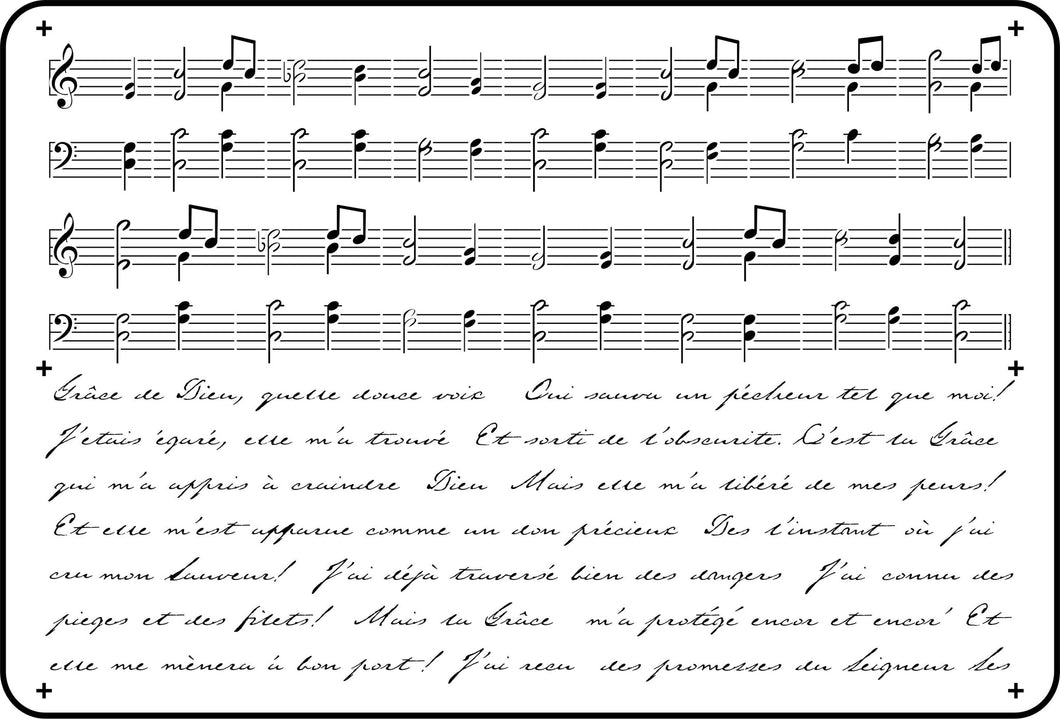 Grâce de Dieu, quelle douce voix Qui sauva un pécheur tel que moi!
J'etais égaré, elle m'a trouvé Et sorti de l'obscurite. C'est la Grâce
qui m'a appris à craindre Dieu Mais elle m'a libéré de mes peurs!
Et elle m'est apparue comme un don précieux Des l'instant où j'ai
cru mon Sauveur! J'ai déjà traversé bien des dangers J'ai connu des
pieges et des filets! Mais la Grâce m'a protégé encor et encor' Et
elle me mènera à bon port! J'ai recu des promesses du Seigneur Ses